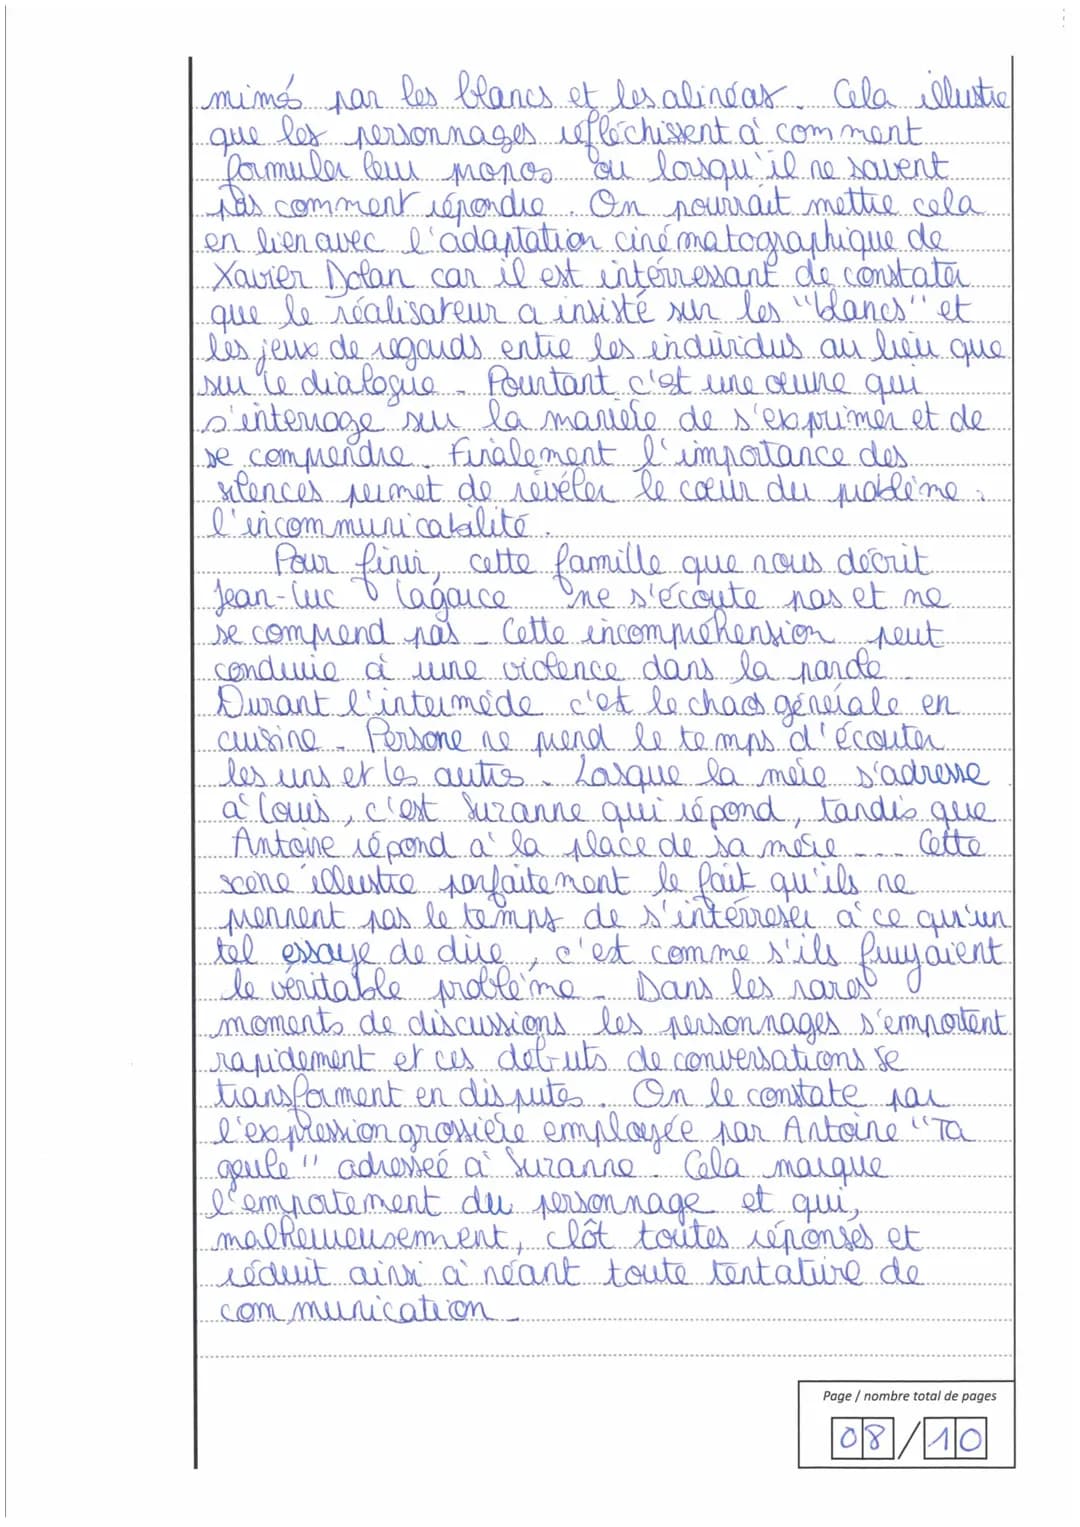 mimés par les blancs et les alinéas. Cela illustre
que les personnages refléchissent à comment
formuler leur propos ou lorsqu'il ne savent
pas comment répondre. On pourrait mettre cela
en lien avec l'adaptation cinématographique de
Xavier Dolan car il est intérressant de constater
que le réalisateur a insisté sur les "blancs" et
les jeux de regards entre les individus au lieu que
sur le dialogue. Pourtant c'est une œuvre qui
s'interroge sur la manière de s'exprimer et de
se comprendre. Finalement l'importance des
silences permet de révéler le cœur du problème :
l'incommunicabilité.
Pour finir, cette famille que nous décrit
Jean-Luc Lagarce ne s'écoute pas et ne
se comprend pas. Cette incompréhension peut
conduire à une violence dans la parole.
Durant l'intermède c'est le chaos générale en
cuisine. Persone ne prend le temps d'écouter
les uns et les autres. Lorsque la mère s'adresse
à Louis, c'est Suzanne qui répond, tandis que
Antoine répond à la place de sa mère ... Cette
scène illustre parfaitement le fait qu'ils ne
prennent pas le temps de s'intérreser à ce qu'un
tel essaye de dire, c'est comme s'ils fuyaient
le véritable problème. Dans les rares
moments de discussions les personnages s'emportent
rapidement et ces debuts de conversations se
transforment en disputes. On le constate par
l'expression grossière employée par Antoine "Ta
geule" adresseé à Suzanne. Cela marque
l'emportement du personnage et qui,
malheureusement, clôt toutes réponses et
réduit ainsi à néant toute tentative de
communication.
Page / nombre total de pages
08/10